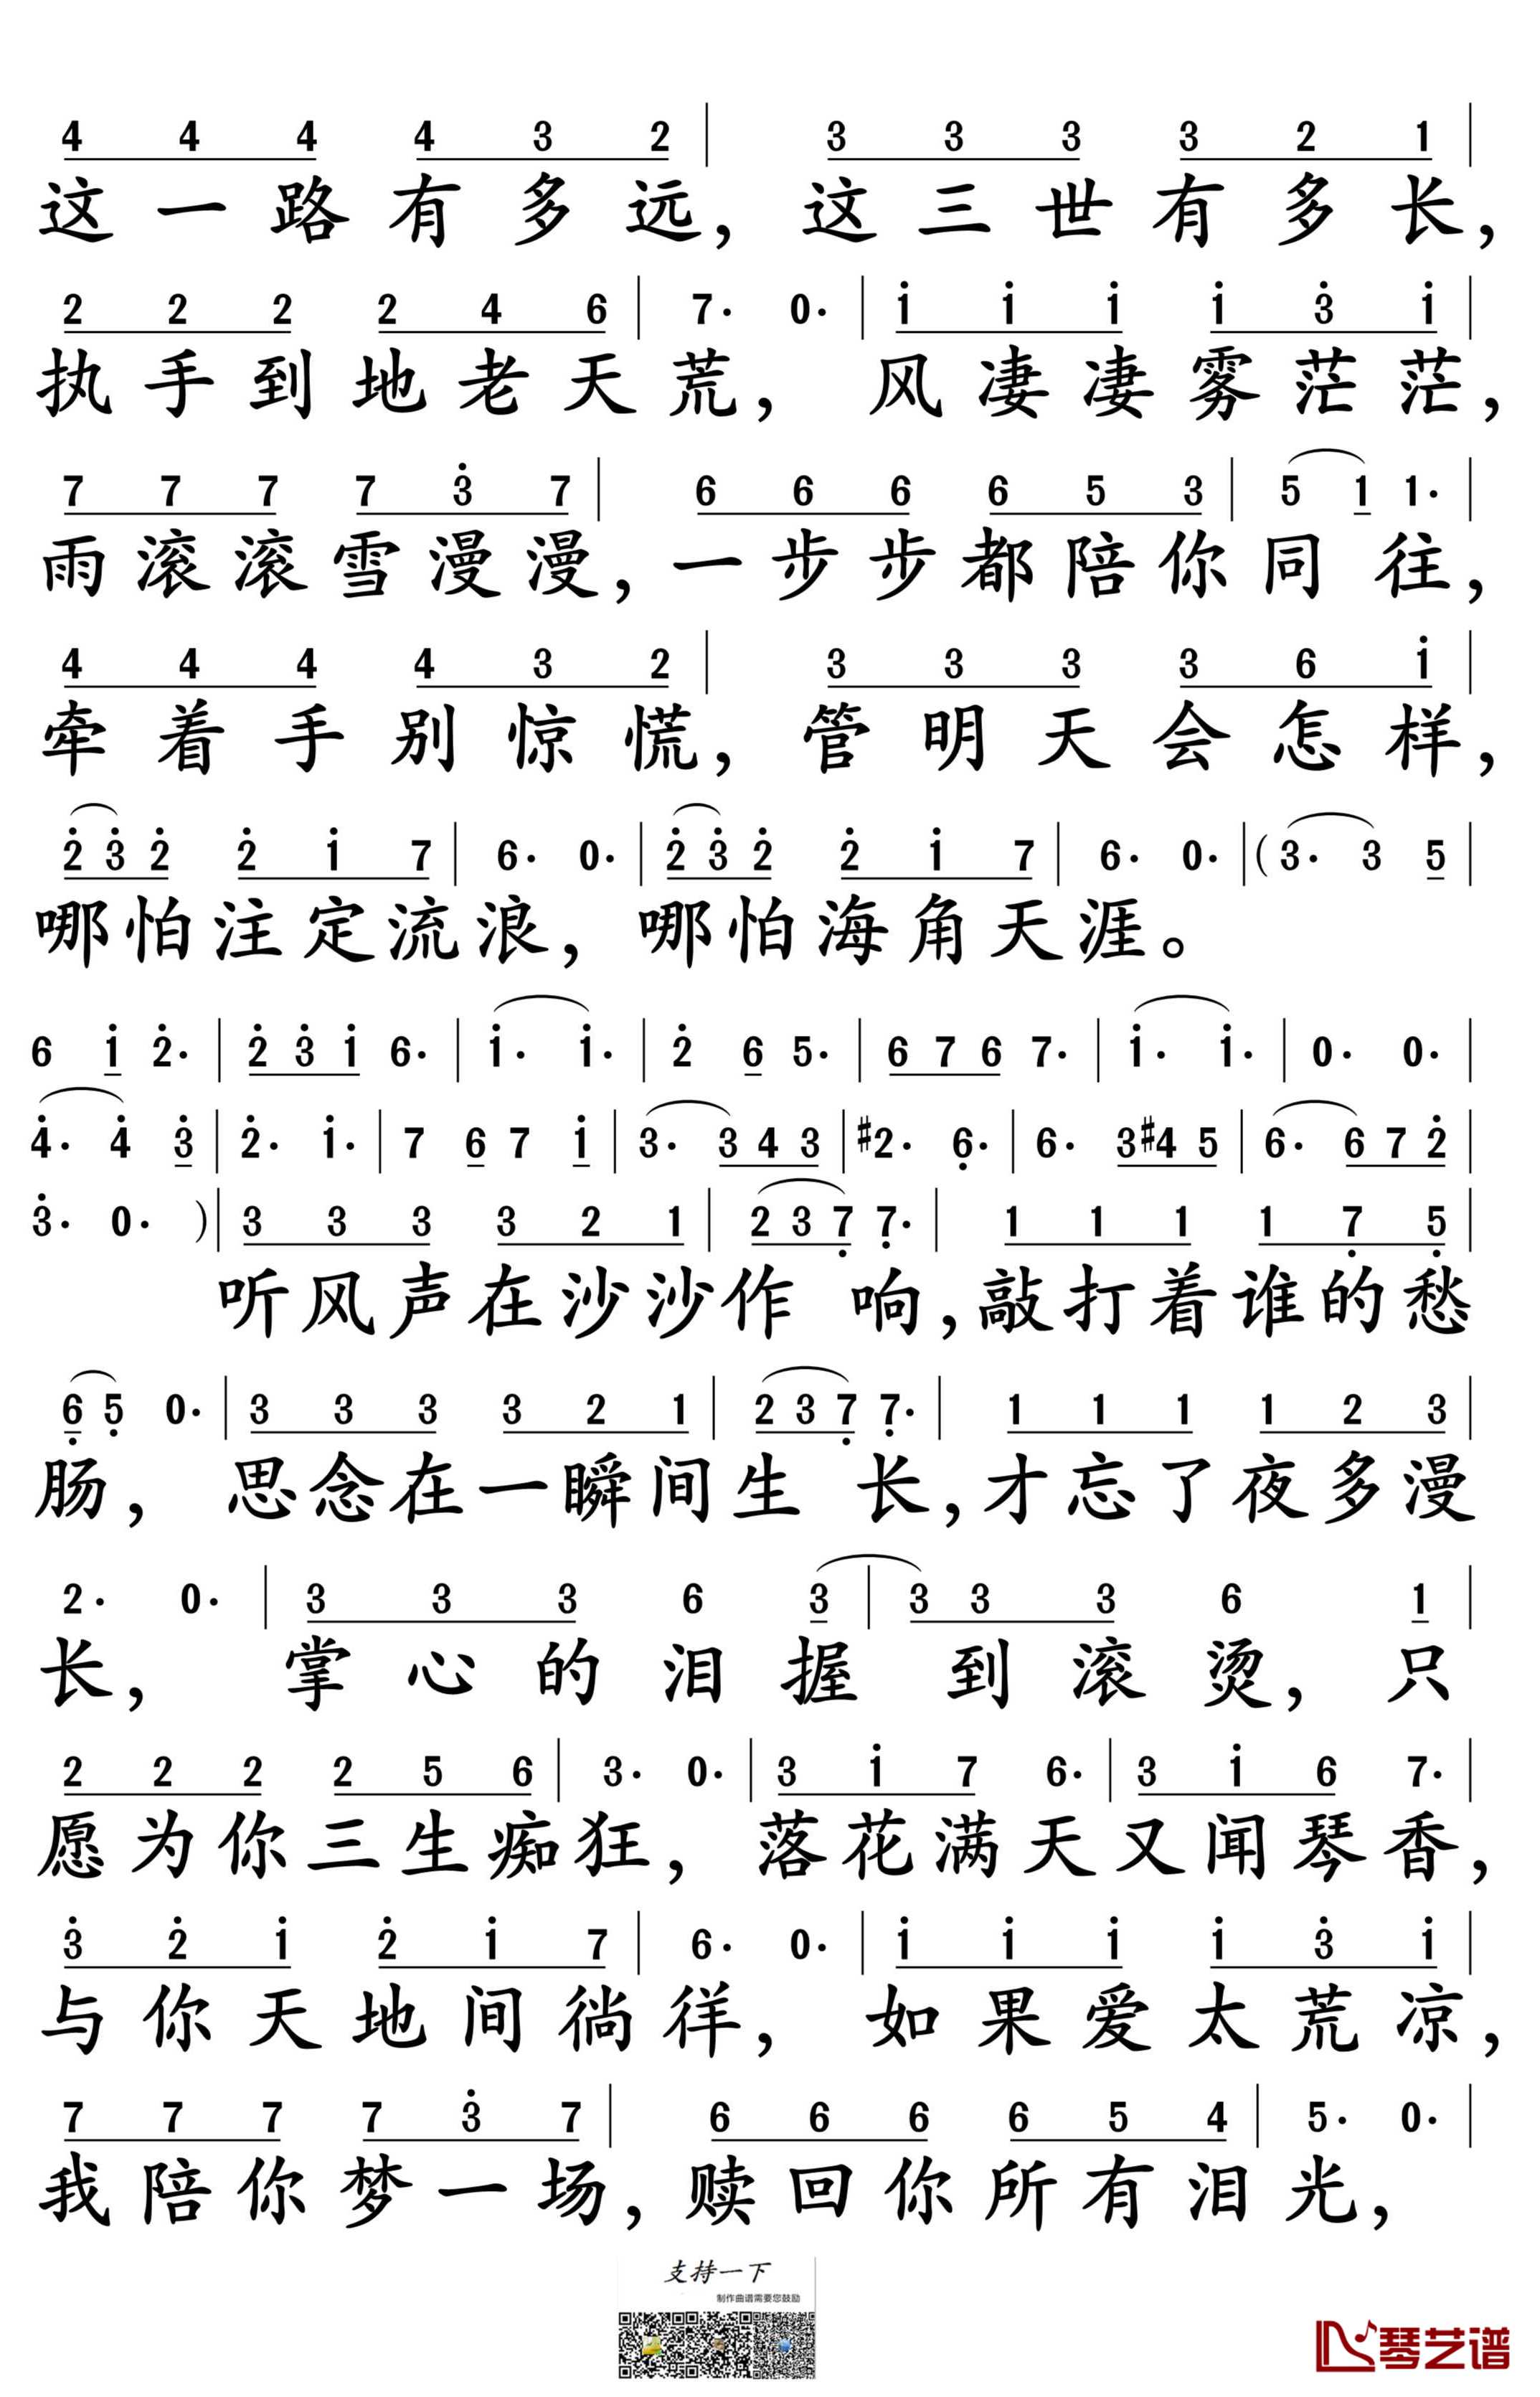 4 4 4 4 3 2 | 3 3 3 3 2 1 |
这一路有多远，这三世有多长，
2 2 2 2 4 6 | 7· 0· | i i i i 3̇ i |
执手到地老天荒，风凄凄雾茫茫，
7 7 7 7 3̇ 7 | 6 6 6 6 5 3 | 5 1 1· |
雨滚滚雪漫漫，一步步都陪你同往，
4 4 4 4 3 2 | 3 3 3 3 6 i |
牵着手别惊慌，管明天会怎样，
2̇ 3̇ 2̇ 2̇ i 7 | 6· 0· | 2̇ 3̇ 2̇ 2̇ i 7 | 6· 0· | (3· 3 5 |
哪怕注定流浪，哪怕海角天涯。
6 i 2̇· | 2̇ 3̇ i 6· | i· i· | 2̇ 6 5· | 6 7 6 7· | i· i· | 0· 0· |
4̇· 4̇ 3̇ | 2̇· i· | 7 6 7 i | 3· 3 4 3 | #2· 6̣· | 6· 3 #4 5 | 6· 6 7 2̇ |
3̇· 0· ) | 3 3 3 3 2 1 | 2 3 7̣ 7̣· | 1 1 1 1 7̣ 5̣ |
听风声在沙沙作响，敲打着谁的愁
6̣ 5̣ 0· | 3 3 3 3 2 1 | 2 3 7̣ 7̣· | 1 1 1 1 2 3 |
肠，思念在一瞬间生长，才忘了夜多漫
2· 0· | 3 3 3 6 3 | 3 3 3 6 1 |
长，掌心的泪握到滚烫，只
2 2 2 2 5 6 | 3· 0· | 3 i 7 6· | 3 i 6 7· |
愿为你三生痴狂，落花满天又闻琴香，
3̇ 2̇ i 2̇ i 7 | 6· 0· | i i i i 3̇ i |
与你天地间徜徉，如果爱太荒凉，
7 7 7 7 3̇ 7 | 6 6 6 6 5 4 | 5· 0· |
我陪你梦一场，赎回你所有泪光，
支持一下
制作曲谱需要您鼓励
琴艺谱